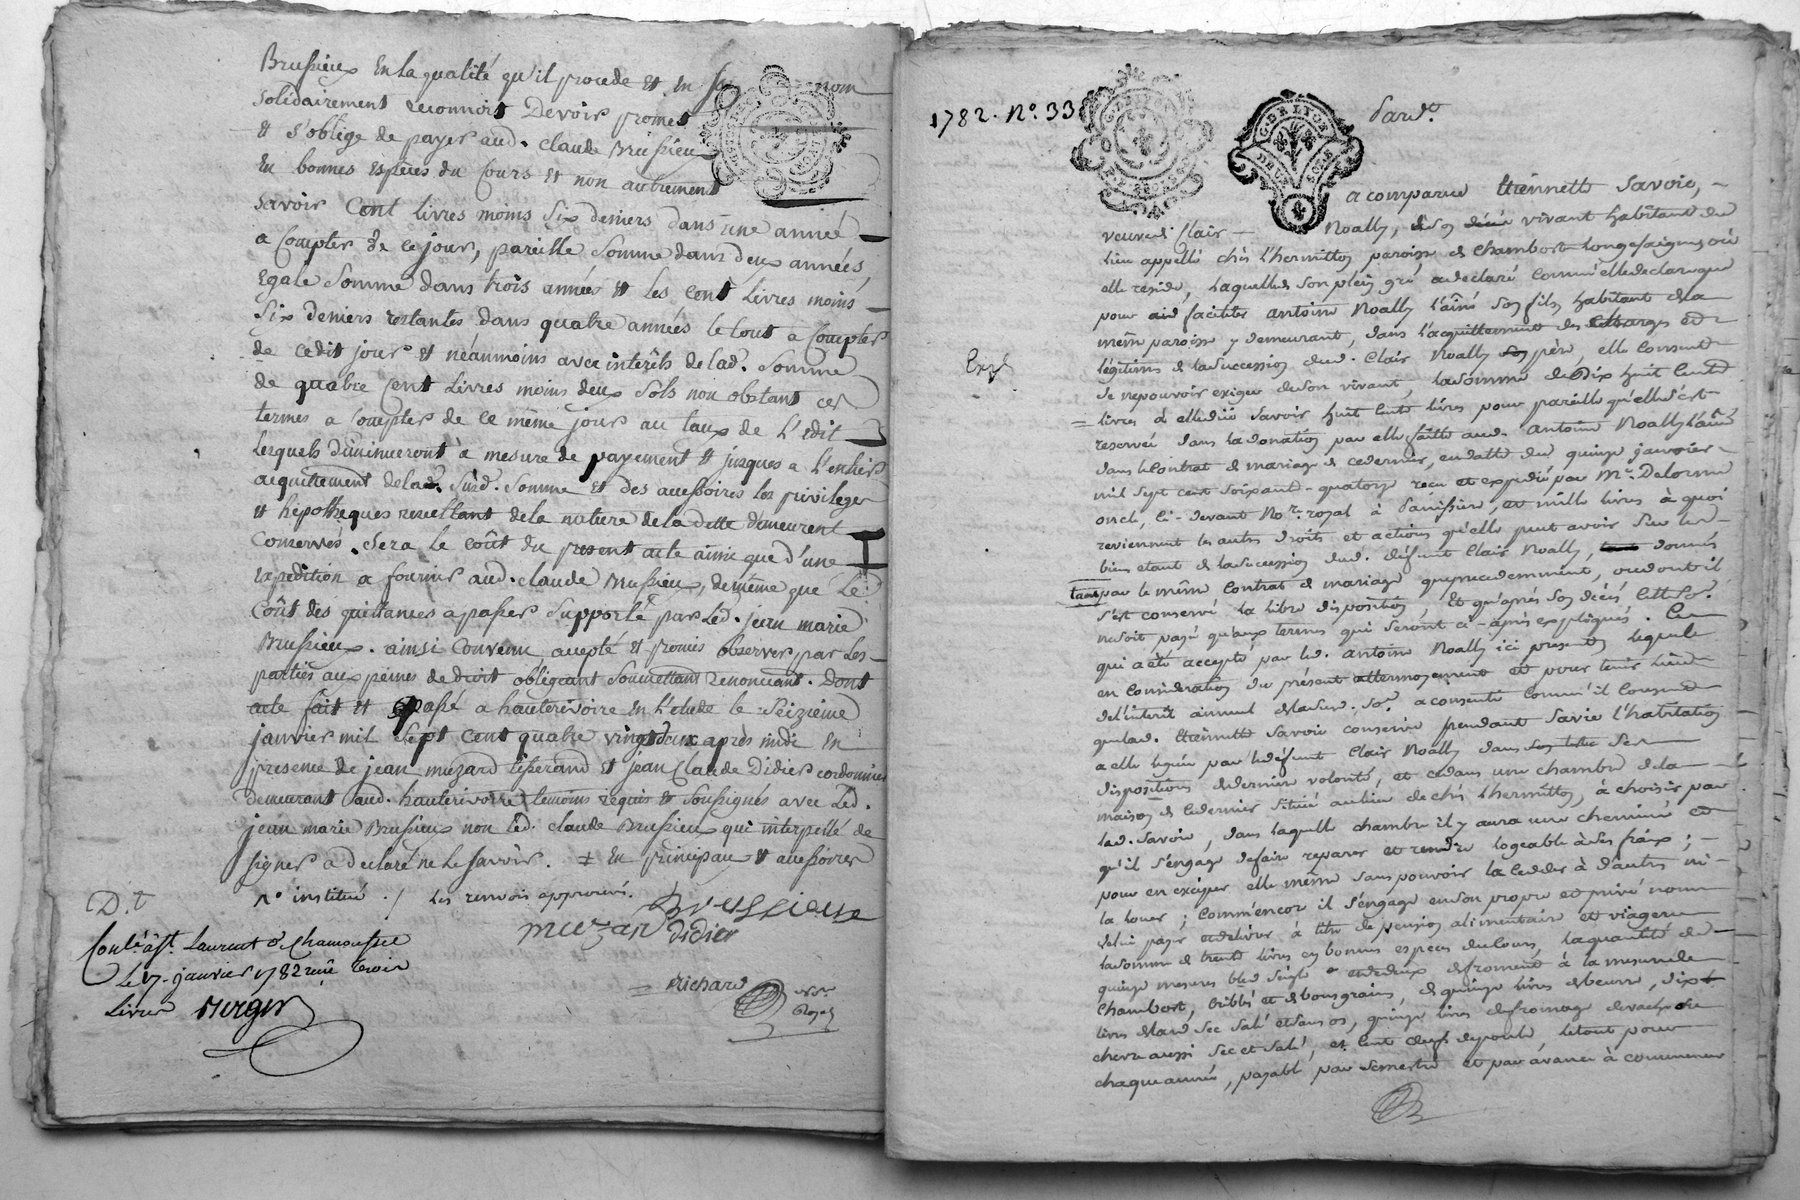 Brussieux En la qualité qu'il procede et en son nom
solidairement reconnoit Devoir promet
et s'oblige de payer aud. Claude Brussieux
En bonnes espèces du Cours et non autrement
savoir Cent livres moins Six deniers dans une année
a Compter de ce jour, pareille Somme dans deux années,
Egale Somme dans trois années et les cent Livres moins
Six deniers restantes dans quatre années le tout a Compter
de cedit jour et néanmoins avec interêts de lad. Somme
de quatre Cent Livres moins deux Sols non obstant ces
termes a compter de ce même jour au taux de L'edit
Lesquels diminueront à mesure de payement et jusques a L'entier
acquittement de lad. susd. Somme et des accessoires les privileges
et hépothèques resultant de la nature de la dette demeurent
Conservés. Sera le coût du present acte ainsi que d'une
expedition a fournir aud. claude Brussieux, de même que Le
Coût des quittances a passer Supporté par Led. jean marie
Brussieux. ainsi Convenu accepté et promis observer par Les
parties aux peines de droit obligeant Soumettant renoncant. Dont
acte fait et passé a hauterivoire en L'etude le Seizieme
janvier mil Sept cent quatre vingt deux après midi En
presence de jean muzard tisserand et jean Claude Didier cordonnier
demeurant aud. hauterivoire temoins requis et Soussignés avec Led.
jean marie Brussieux non Led. claude Brussieux qui interpellé de
signer a declaré ne le savoir. ≠ En principaux et accessoires
n° institué ./ Les renvois approuvés.
Brussieux
muzar didier
Richard
not.re Royal
D.t
Conlé à St. Laurent d. Chamousset
Le 17. janvier 1782 reçû trois
Livres Berger
1782. N°. 33
G. DE LYON
G. DE LYON
DEUX SOLS
Pard.t
a comparue Etiennette Savoie,
veuve d. Clair Noally, de son vivant habitant du
lieu appellé chès L'hermitton paroisse de Chambost Longesaigne, où
elle reside, Laquelle de son plein gré a declaré comm'elle declare que
pour faciliter antoine Noally L'ainé son fils habitant de la
même paroisse y demeurant, dans l'acquittement des charges et
légitimes de la succession dud. Clair Noally son père, elle consent
de ne pouvoir exiger de son vivant, la somme de dix huit cent
Expé
livres à elle dûë savoir huit cents livres pour pareille qu'elle s'est
reservée dans la donation par elle faitte aud. antoine Noally L'ainé
dans le Contrat de mariage de ce dernier, en datte du quinze janvier
mil sept cent soixante-quatorze reçu et expedié par M.e Delorme
oncle, ci-devant No.re royal à Panissière, et mille livres à quoi
reviennent les autres droits et actions qu'elle peut avoir sur les
biens etant de la succession dud. défunt Clair Noally, donnés
par le même Contrat de mariage que precedemment, ou dont il
s'est conservé la libre disposition, Et qu'après son décès lette so.e
ne soit payé qu'aux termes qui seront ci-après expliqués. Ce
qui a été accepté par led. antoine Noally ici present lequel
en Consideration du présent attermoyement et pour tenir lieu
de l'interêt annuel de lad. so.e a consenti comm'il consent
que lad. Etiennette Savoie conserve pendant sa vie l'habitation
a elle leguée par led. défunt Clair Noally dans son
dispositions de derniere volonté, et ce dans une chambre de la
maison de ce dernier située au lieu de chès L'hermitton, à choisir par
lad. Savoie, dans laquelle chambre il y aura une cheminée et
qu'il s'engage de faire reparer et rendre logeable à ses fraix;
pour en exciper elle même sans pouvoir la ceder à d'autres ni
la louer; Comm'encor il s'engage en son propre et privé nom
de lui payer et delivrer à titre de pension alimentaire et viagere
la somme de trente livres en bonnes especes du Cours, la quantité de
quinze mesures bled seigle et de deux de froment à la mesure de
Chambost, cribbés et de bons grains, de quinze livres de beurre, dix
livres de lard sec salé et sans os, quinze livres de fromage de vache ou
chevre aussi sec et salé, et cent oeufs de poule, le tout pour
chaque année, payable par semestre et par avance à commencer